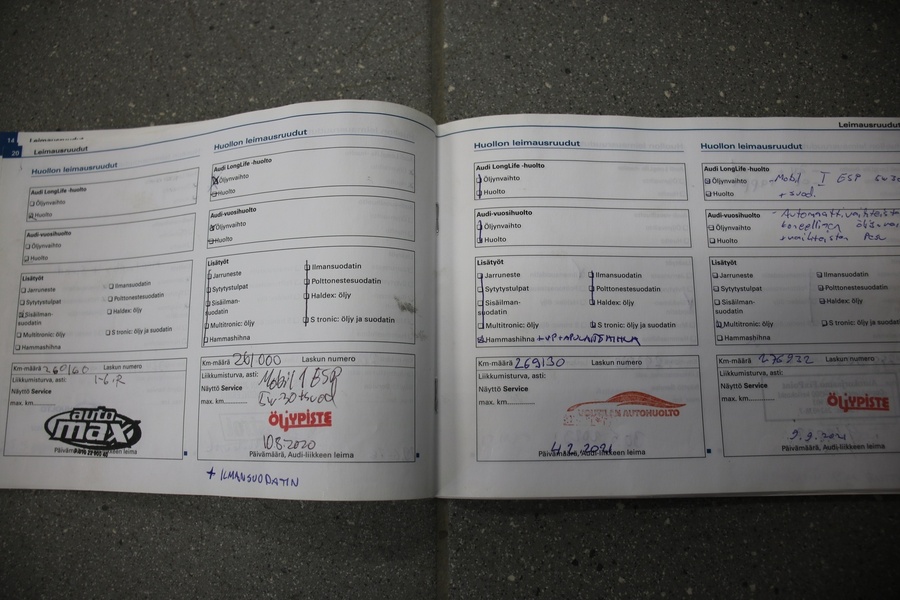 14
20 Leimausruudut
Huollon leimausruudut
Audi LongLife -huolto
Öljynvaihto
Huolto
Audi-vuosihuolto
Öljynvaihto
Huolto
Lisätyöt
Jarruneste
Sytytystulpat
Sisäilman-
suodatin
Multitronic: öljy
Hammashihna
Ilmansuodatin
Polttonestesuodatin
Haldex: öljy
S tronic: öljy ja suodatin
Km-määrä 260160 Laskun numero
Liikkumisturva, asti:
Näyttö Service
max. km
auto
max
Päivämäärä, Audi-liikkeen leima
Huollon leimausruudut
Audi LongLife -huolto
Öljynvaihto
Huolto
Audi-vuosihuolto
Öljynvaihto
Huolto
Lisätyöt
Jarruneste
Sytytystulpat
Sisäilman-
suodatin
Multitronic: öljy
Hammashihna
Ilmansuodatin
Polttonestesuodatin
Haldex: öljy
S tronic: öljy ja suodatin
Km-määrä 261000 Laskun numero
Liikkumisturva, asti: Mobil 1 ESP
Näyttö Service 5w30+suod
max. km
ÖLJYPISTE
10.8-2020
Päivämäärä, Audi-liikkeen leima
+ ILMANSUODATIN
Huollon leimausruudut
Audi LongLife -huolto
Öljynvaihto
Huolto
Audi-vuosihuolto
Öljynvaihto
Huolto
Lisätyöt
Jarruneste
Sytytystulpat
Sisäilman-
suodatin
Multitronic: öljy
Hammashihna
Ilmansuodatin
Polttonestesuodatin
Haldex: öljy
S tronic: öljy ja suodatin
Km-määrä 269130 Laskun numero
Liikkumisturva, asti:
Näyttö Service
max. km
AUTOHUOLTO
4.2.2021
Päivämäärä, Audi-liikkeen leima
Leimausruudut
Huollon leimausruudut
Audi LongLife -huolto
Öljynvaihto
Huolto
-Mobil 1 ESP 5w30
+suod.
Audi-vuosihuolto
Öljynvaihto
Huolto
Lisätyöt
Jarruneste
Sytytystulpat
Sisäilman-
suodatin
Multitronic: öljy
Hammashihna
Ilmansuodatin
Polttonestesuodatin
Haldex: öljy
S tronic: öljy ja suodatin
Km-määrä 276932 Laskun numero
Liikkumisturva, asti:
Näyttö Service
max. km
ÖLJYPISTE
9.9.2021
Päivämäärä, Audi-liikkeen leima